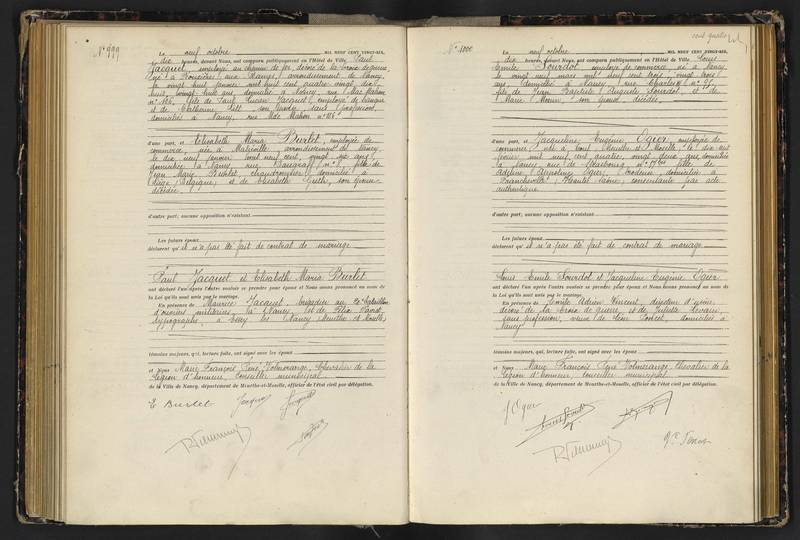 N° 999
Le neuf octobre MIL NEUF CENT VINGT-SIX,
dix heures, devant Nous, ont comparu publiquement en l'Hôtel de Ville, Paul
Jacquot, employé au chemin de fer, décoré de la Croix de guerre,
né à arrondissement de Nancy,
le vingt huit janvier mil huit cent quatre vingt dix
huit, vingt huit ans, domicilié à Nancy, rue Mac Mahon
n° 126, fils de Paul Lucien Jacquot, employé de banque
et de sans profession,
domiciliés à Nancy, rue Mac Mahon n° 126
d'une part, et Elisabeth Maria Burlet, employée de
commerce, née à arrondissement de Nancy,
le dix neuf janvier mil neuf cent, vingt six ans,
domiciliée à Nancy, rue fille de
Jean Marie Burlet, domicilié à
Liège, Belgique, et de Elisabeth son épouse
décédée
d'autre part; aucune opposition n'existant
Les futurs époux
déclarent qu'il n'a pas été fait de contrat de mariage
Paul Jacquot et Elisabeth Maria Burlet
ont déclaré l'un après l'autre vouloir se prendre pour époux et Nous avons prononcé au nom de
la Loi qu'ils sont unis par le mariage.
En présence de Maurice Jacquot, brigadier au bataillon
d'ouvriers militaires, à Nancy, et de Félix
typographe, à Essey les Nancy Meurthe et Moselle,
témoins majeurs, qui, lecture faite, ont signé avec les époux
et Nous Marie François René Volmerange, Chevalier de la
Légion d'honneur, conseiller municipal
de la Ville de Nancy, département de Meurthe-et-Moselle, officier de l'état civil par délégation.
E Burlet Jacquot
N° 1000
cent quatre
Le neuf octobre MIL NEUF CENT VINGT-SIX,
dix heures, devant Nous, ont comparu publiquement en l'Hôtel de Ville, Louis
Emile Sourdot, employé de commerce, né à Nancy,
le vingt neuf mars mil neuf cent trois, vingt trois
ans, domicilié à Nancy, rue Charles n° 95,
fils de Jean Baptiste Auguste Sourdot, et de
Marie son épouse décédés
d'une part, et Jacqueline Eugénie Ogier, employée de
commerce, née à Toul Meurthe et Moselle le dix sept
février mil neuf cent quatre, vingt deux ans, domiciliée
à Nancy, rue de Strasbourg n° fille de
Adeline Augustine Ogier, brodeuse, domiciliée à
Francheville, Haute Saône, consentante par acte
authentique
d'autre part; aucune opposition n'existant
Les futurs époux
déclarent qu'il n'a pas été fait de contrat de mariage
Louis Emile Sourdot et Jacqueline Eugénie Ogier
ont déclaré l'un après l'autre vouloir se prendre pour époux et Nous avons prononcé au nom de
la Loi qu'ils sont unis par le mariage.
En présence de Emile Adrien Vincent, directeur d'usine,
décoré de la Croix de guerre, et de Julista
sans profession, veuve de Léon domiciliés à
Nancy
témoins majeurs, qui, lecture faite, ont signé avec les époux
et Nous Marie François René Volmerange, Chevalier de la
Légion d'honneur, conseiller municipal
de la Ville de Nancy, département de Meurthe-et-Moselle, officier de l'état civil par délégation.
J Ogier